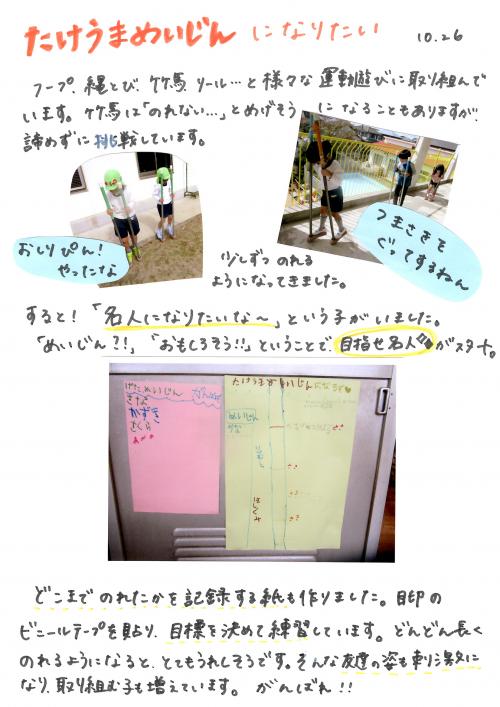 たけうまめいじん になりたい 10.26
フープ、縄とび、竹馬、リール…と様々な運動遊びに取り組んで
います。竹馬は「のれない…」とめげそうになることもありますが、
諦めずに挑戦しています。
おしりぴん!
やったな
つまさきを
ぐってするねん
少しずつのれる
ようになってきました。
すると!「名人になりたいな〜」という子がいました。
「めいじん?!」「おもしろそう!!」ということで、目指せ名人がスタート。
げためいじん
がんばって
きな
かずき
さくら
たけうまめいじんになるぞ
めいじん
はしくみ
どこまでのれたかを記録する紙も作りました。目印の
ビニールテープを貼り、目標を決めて練習しています。どんどん長く
のれるようになると、とてもうれしそうです。そんな友達の姿も刺激に
なり、取り組む子も増えています。がんばれ!!